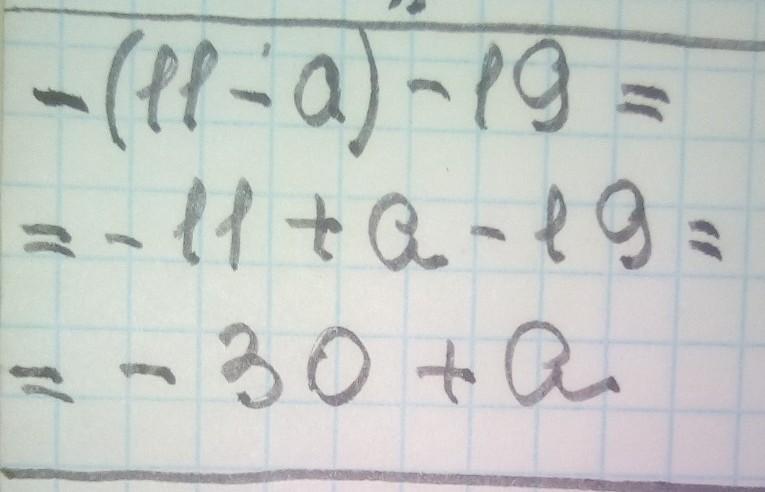 -(11-a)-19=
=-11+a-19=
=-30+a